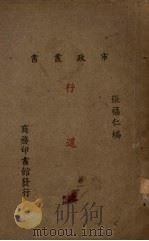 市政叢書
張福仁編
行道
商務印書館發行